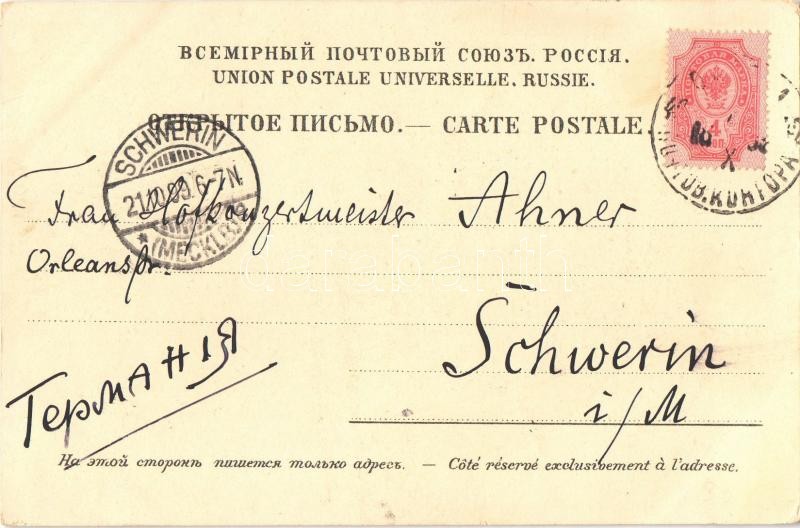 ВСЕМІРНЫЙ ПОЧТОВЫЙ СОЮЗЪ. РОССІЯ.
UNION POSTALE UNIVERSELLE. RUSSIE.
ОТКРЫТОЕ ПИСЬМО. — CARTE POSTALE.
ПОЧТОВАЯ МАРКА
4 КОП
ПОЧТОВ. КОНТОРА
X
SCHWERIN
21.10.99. 6-7N.
* (MECKLB)
Frau Hofkonzertmeister Ahner
Orleansstr.
Schwerin
i/M
Германія
darabanth
На этой сторонѣ пишется только адресъ. — Côté réservé exclusivement à l'adresse.